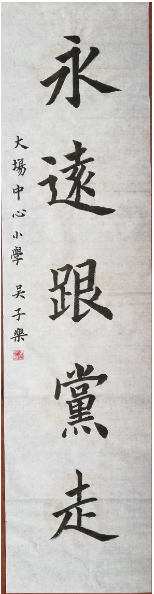 永遠跟黨走
大場中心小學 吴子樂